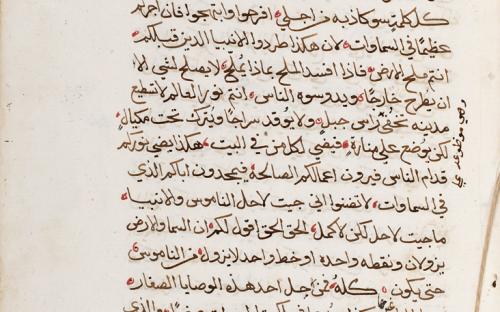 كل كلمة سو كاذبه من اجلي افرحوا وابتهجوا فان اجركم
عظيم في السماوات لان هكذا طردوا الانبيا الذين قبلكم
انتم ملح الارض فاذا افسد الملح بماذا يملح لا يصلح لشي الا
ان يطرح خارجا ويدوسوه الناس انتم نور العالم لا تستطيع
مدينه تختفي راس جبل ولا يوقد سراجا ويترك تحت مكيال
لكن يوضع على منارة فيضي لكل من في البيت هكذا يضي نوركم
قدام الناس فيرون اعمالكم الصالحة فيمجدون اباكم الذي
في السماوات لا تضنوا اني جيت لاحل الناموس والانبيا
ما جيت لاحل لكن لاكمل الحق الحق اقول لكم ان السما والارض
يزولان ونقطه واحدة او خط واحد لا يزول من الناموس
حتى يكون كله فمن حل احد هذه الوصايا الصغار